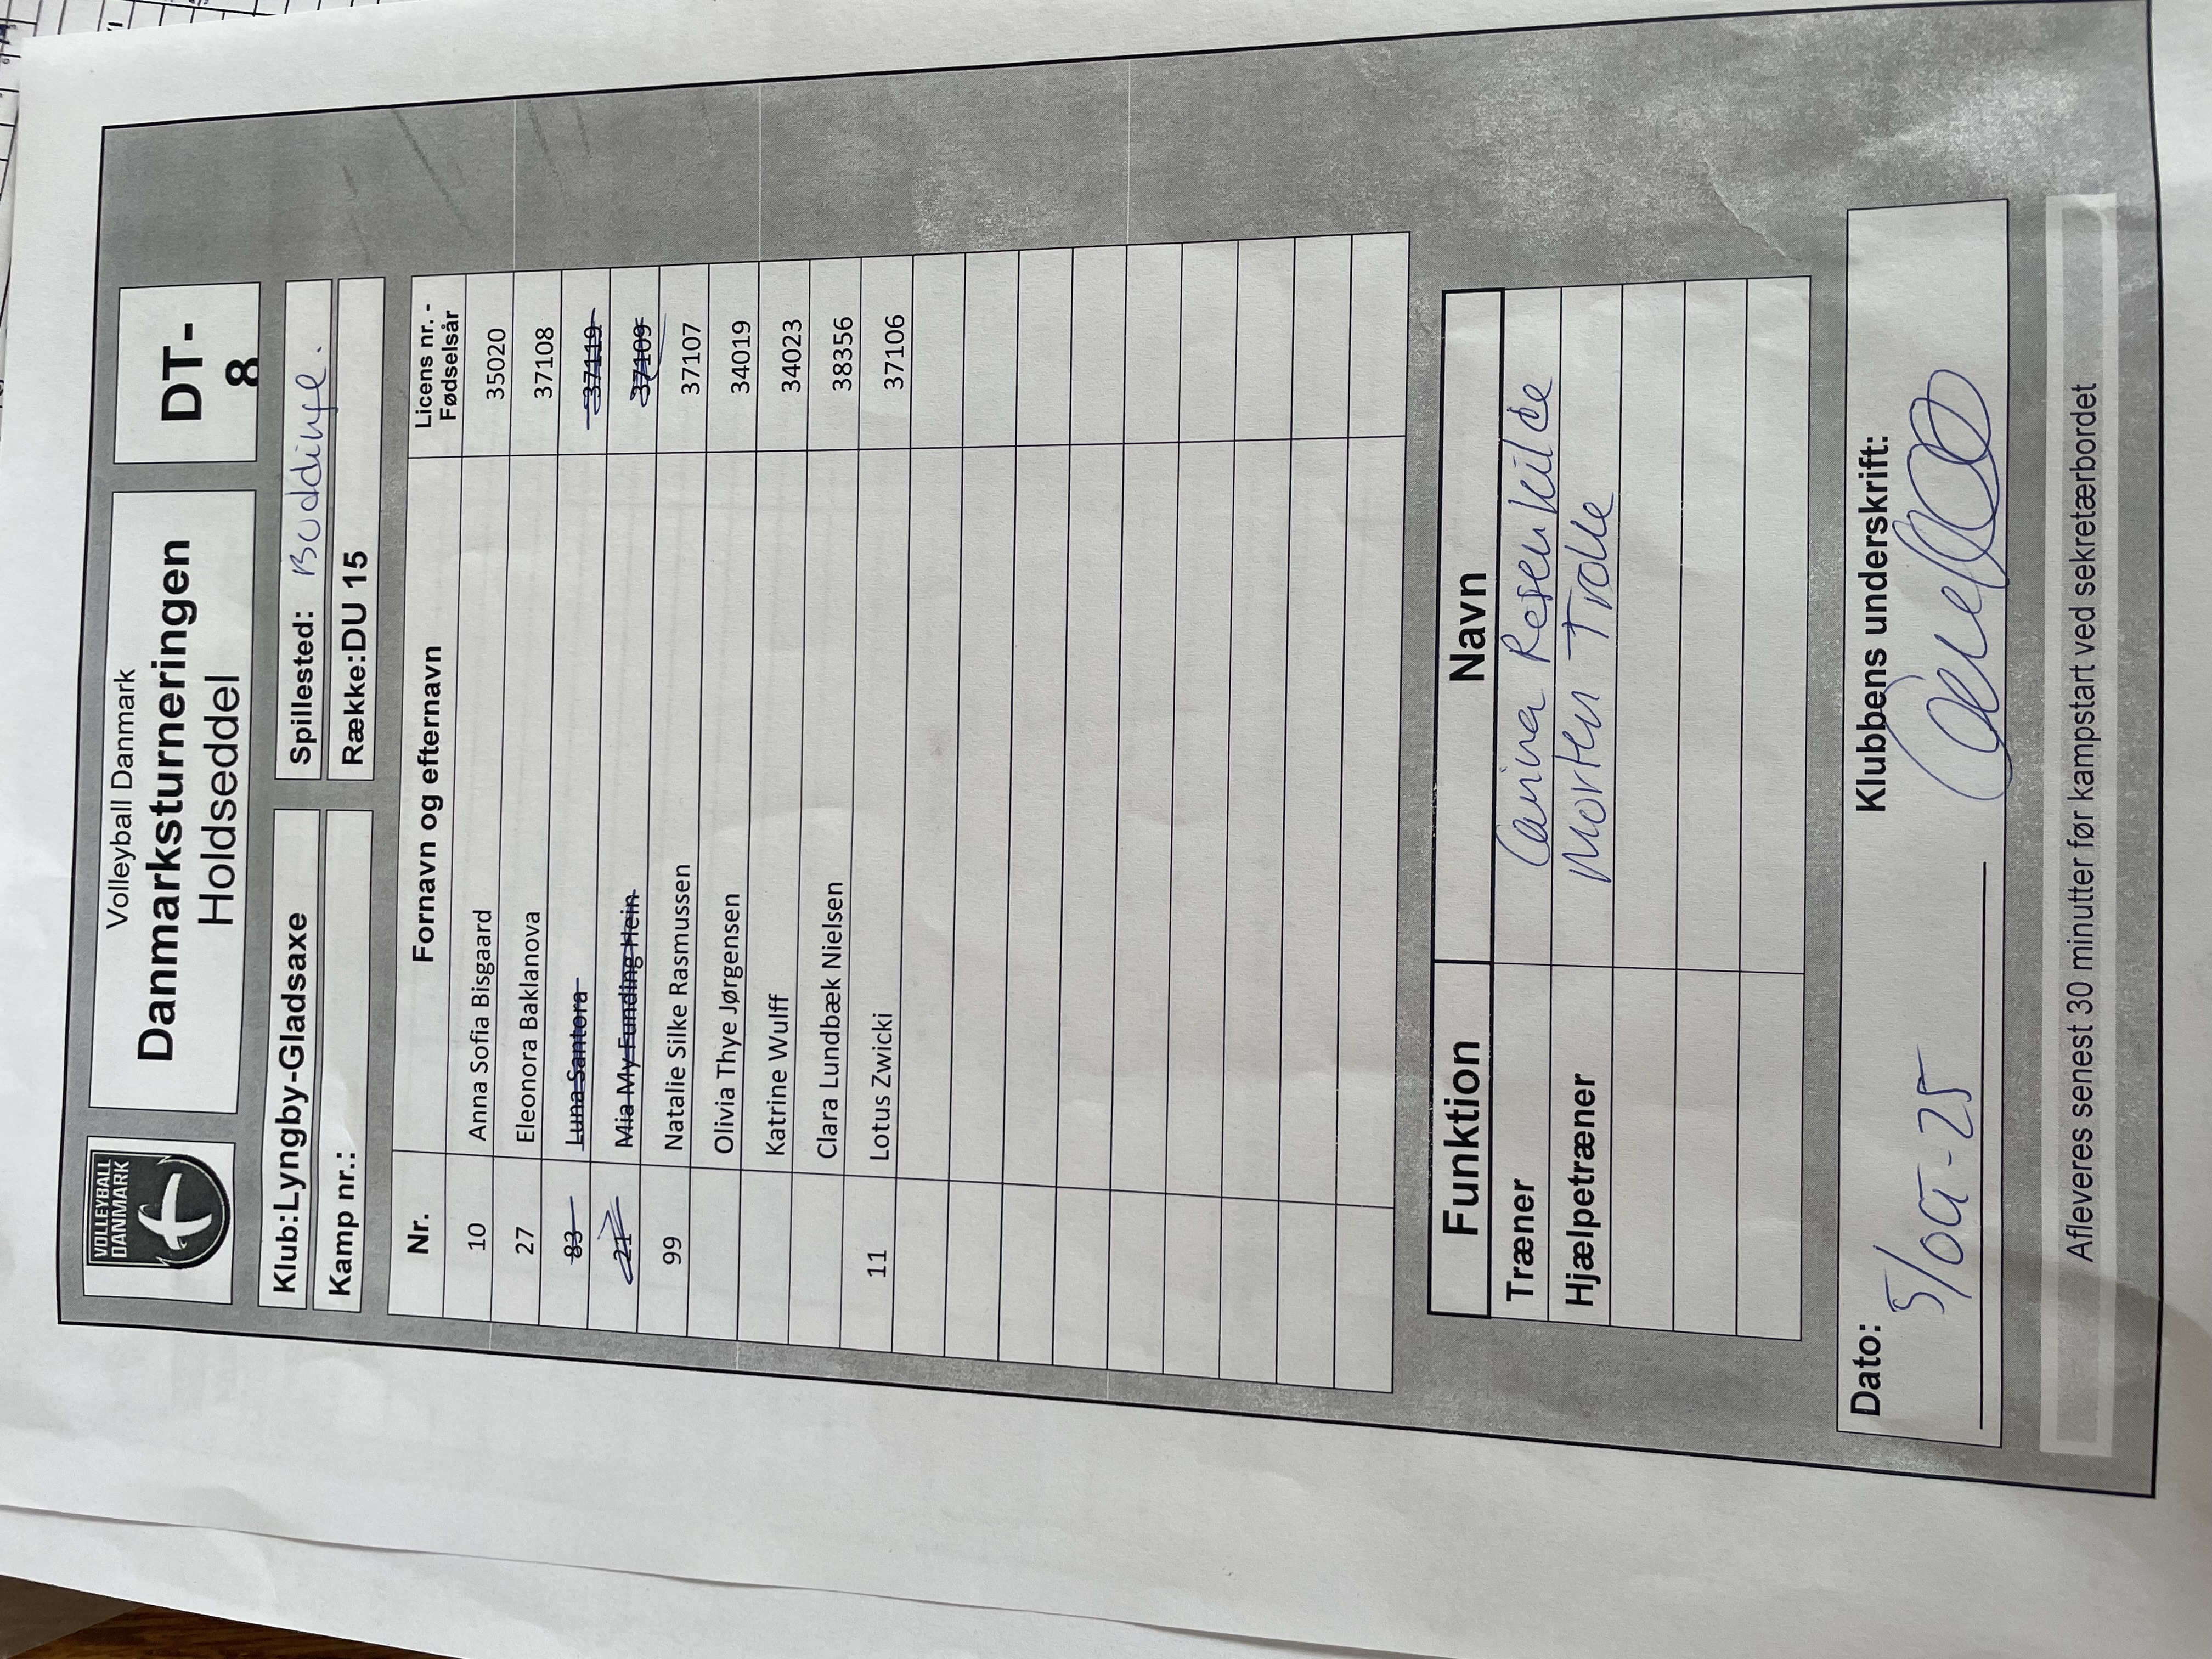 VOLLEYBALL
DANMARK
Volleyball Danmark
Danmarksturneringen
Holdseddel
DT-
8
Klub:Lyngby-Gladsaxe
Spillested: Buddinge.
Kamp nr.:
Række:DU 15
Nr. Fornavn og efternavn Licens nr. - Fødselsår
10 Anna Sofia Bisgaard 35020
27 Eleonora Baklanova 37108
83 Luna Santora 37119
21 Mia My Funding Hein 37109
99 Natalie Silke Rasmussen 37107
Olivia Thye Jørgensen 34019
Katrine Wulff 34023
Clara Lundbæk Nielsen 38356
11 Lotus Zwicki 37106
Funktion Navn
Træner Carina Rosenkilde
Hjælpetræner Morten Trolle
Dato: 5/oct-25
Klubbens underskrift:
Afleveres senest 30 minutter før kampstart ved sekretærbordet